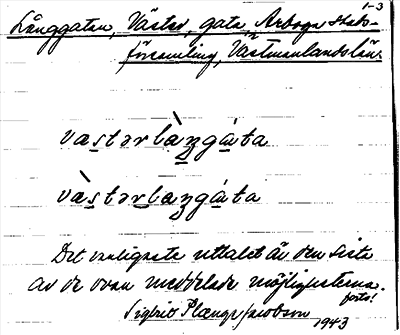 1-3
Långgatan, Väster, gata, Arboga stads-
församling, Västmanlands län.
västərlàŋgáta
vàstərlaŋgáta
Det vanligaste uttalet är den sista
av de ovan meddelade möjligheterna.
forts!
Sigfrid Plænge Jacobson
1943